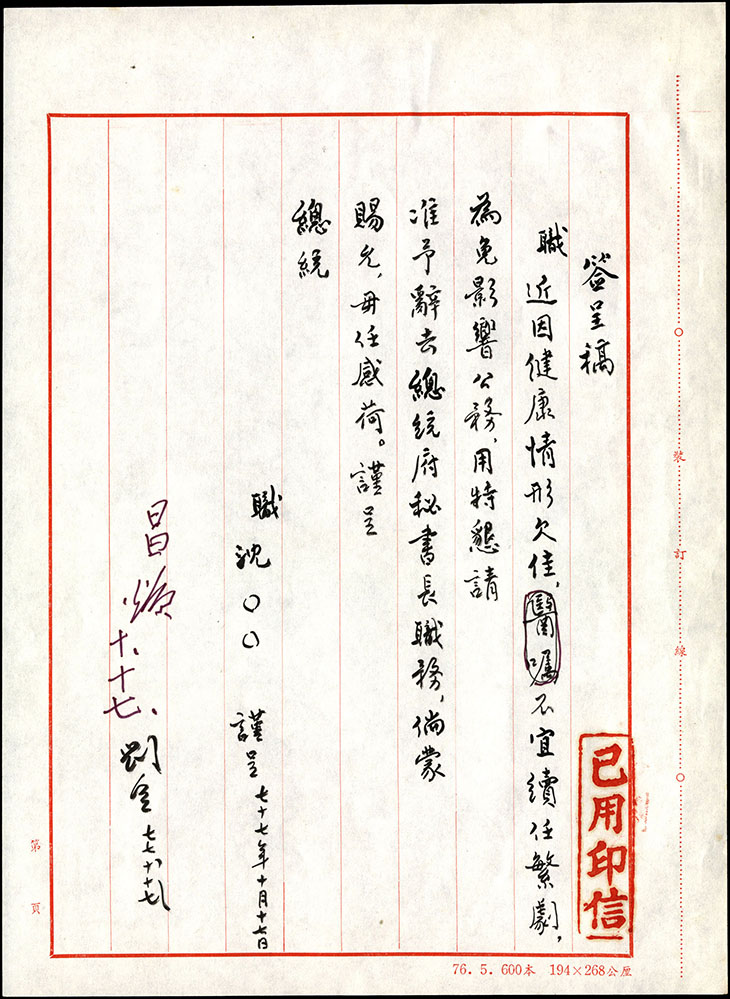 簽呈稿
職近因健康情形欠佳，醫囑不宜續任繁劇，
為免影響公務，用特懇請
准予辭去總統府秘書長職務，倘蒙
賜允，毋任感荷。謹呈
總統
職沈○○謹呈七十七年十月十七日
昌煥十、十七、
已用印信
裝訂線
第 頁
76. 5. 600本 194×268公厘